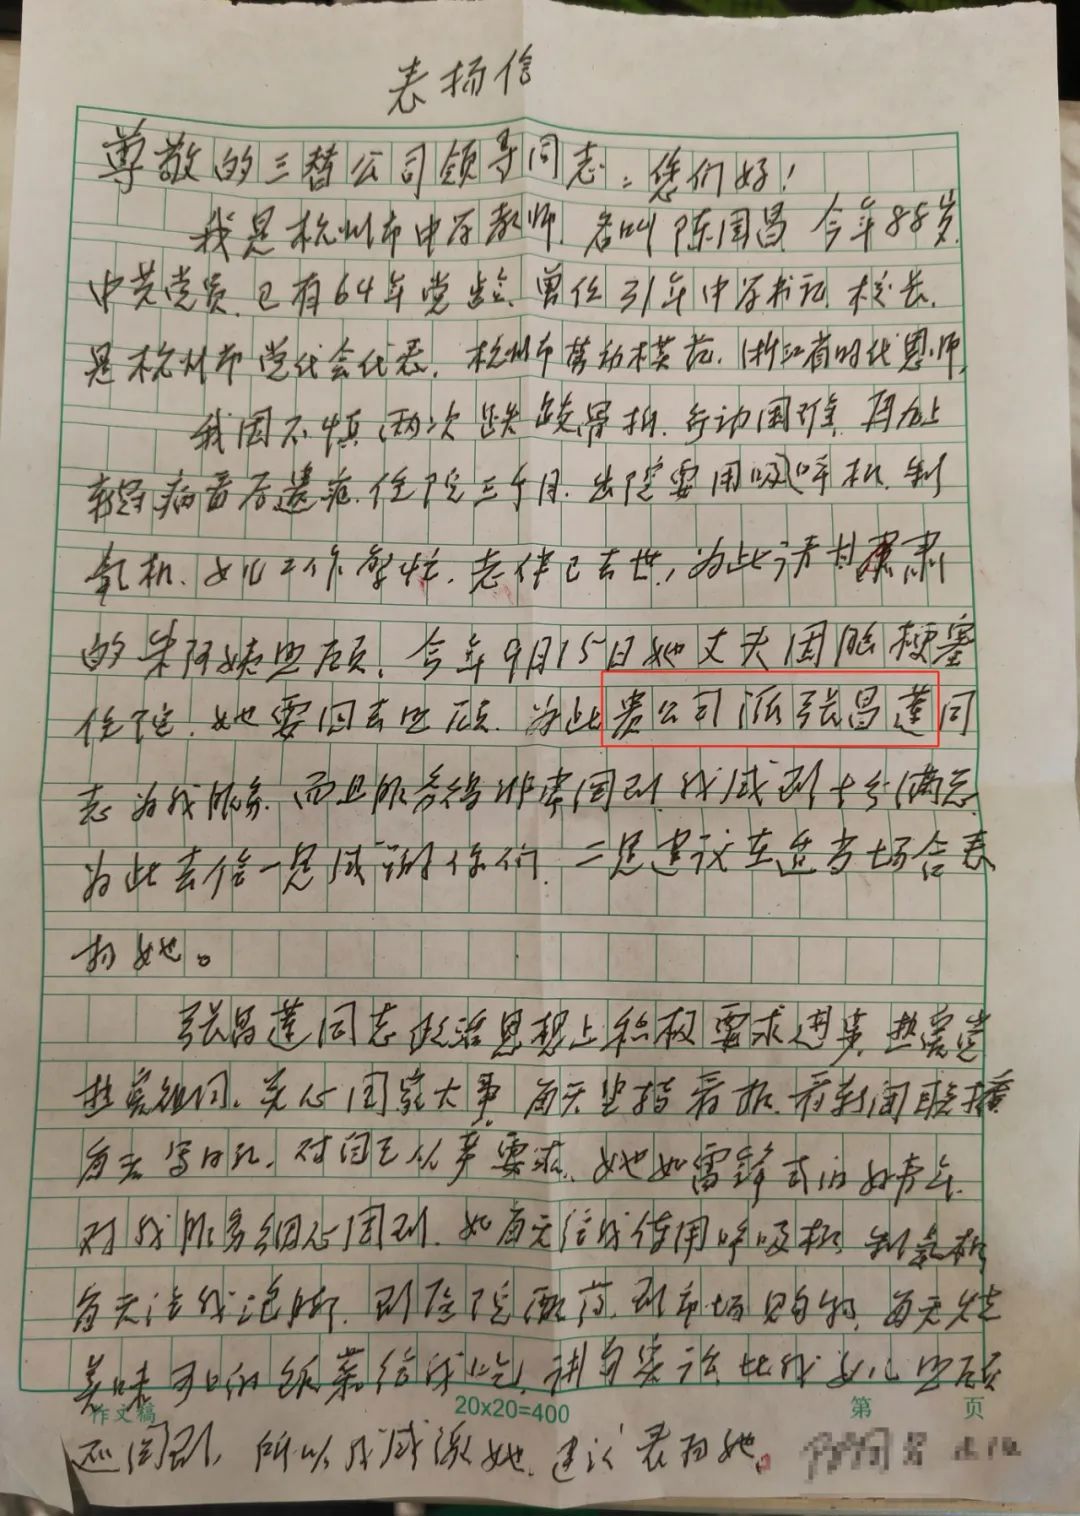 表扬信
尊敬的三替公司领导同志：您们好！
我是杭州市中学教师，名叫陈国昌，今年88岁，
中共党员，已有64年党龄，曾任31年中学书记、校长，
是杭州市党代会代表，杭州市劳动模范，浙江省时代恩师，
我因不慎两次跌跤骨折，行动困难，再加上
新冠病毒后遗症，住院三个月，出院要用呼吸机、制
氧机，女儿工作繁忙，老伴已去世，为此请甘肃
的朱阿姨照顾，今年9月15日她丈夫因脑梗塞
住院，她要回去照顾，为此贵公司派张昌莲同
志为我服务，而且服务得非常周到，我感到十分满意
为此去信一是感谢你们，二是建议在适当场合表
扬她。
张昌莲同志政治思想上积极要求进步，热爱党
热爱祖国，关心国家大事，每天坚持看报，看新闻联播
每天写日记，对自己从严要求，她如雷锋式的好青年，
对我服务细心周到，如每天给我使用呼吸机、制氧机
每天给我泡脚，到医院配药，到市场购物，每天烧
美味可口的饭菜给我吃，讲句实话比我女儿照顾
作文稿 20x20=400 第 页
还周到，所以我感激她，建议表扬她。